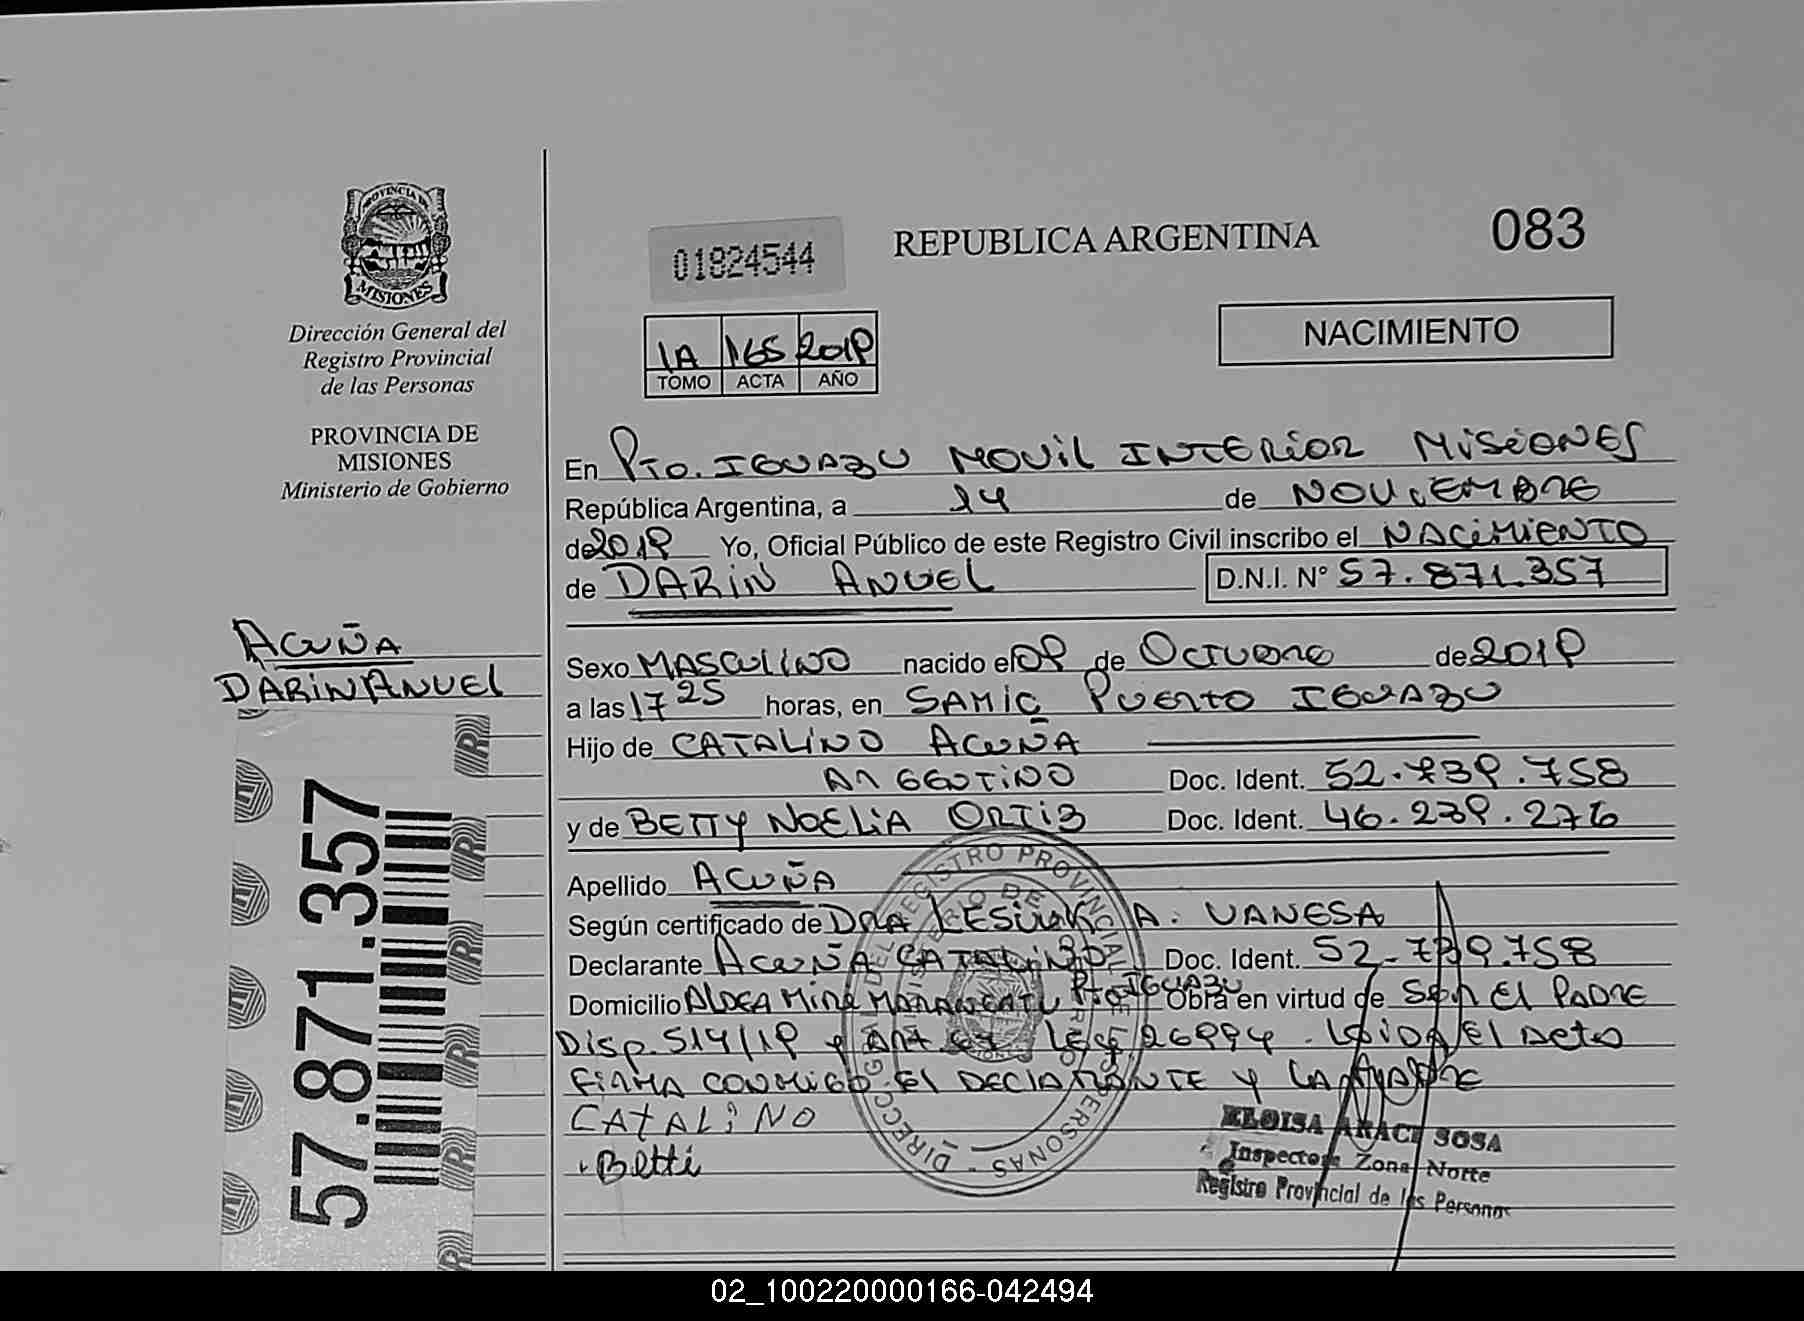 PROVINCIA DE
MISIONES
Dirección General del
Registro Provincial
de las Personas
PROVINCIA DE
MISIONES
Ministerio de Gobierno
01824544
REPUBLICA ARGENTINA
083
1A 165 2019
TOMO ACTA AÑO
NACIMIENTO
En Pto. IGUAZU MOVIL INTERIOR MISIONES
República Argentina, a 14 de NOVIEMBRE
de 2019 Yo, Oficial Público de este Registro Civil inscribo el NACIMIENTO
de DARIN ANUEL D.N.I. N° 57.871.357
ACUÑA
DARIN ANUEL
Sexo MASCULINO nacido el 09 de OCTUBRE de 2019
a las 17 25 horas, en SAMIC PUERTO IGUAZU
Hijo de CATALINO ACUÑA
ARGENTINO Doc. Ident. 52.739.758
y de BETTY NOELIA ORTIZ Doc. Ident. 46.239.276
Apellido ACUÑA
Según certificado de DRA A. VANESA
Declarante ACUÑA CATALINO Doc. Ident. 52.739.758
Domicilio ALDEA MINA MARANGATU Pto IGUAZU Obra en virtud de SER EL PADRE
Disp. 514/19 y ART. 64 LEY 26994. LEIDA El Acto
FIRMA CONMIGO El DECLARANTE Y LA MADRE
CATALINO
Betti
DIRECC. GRAL. DEL REGISTRO PROVINCIAL DE LAS PERSONAS
MINISTERIO DE GOBIERNO
ELOISA ARACI SOSA
Inspectora Zona Norte
Registro Provincial de las Personas
57.871.357
02_100220000166-042494